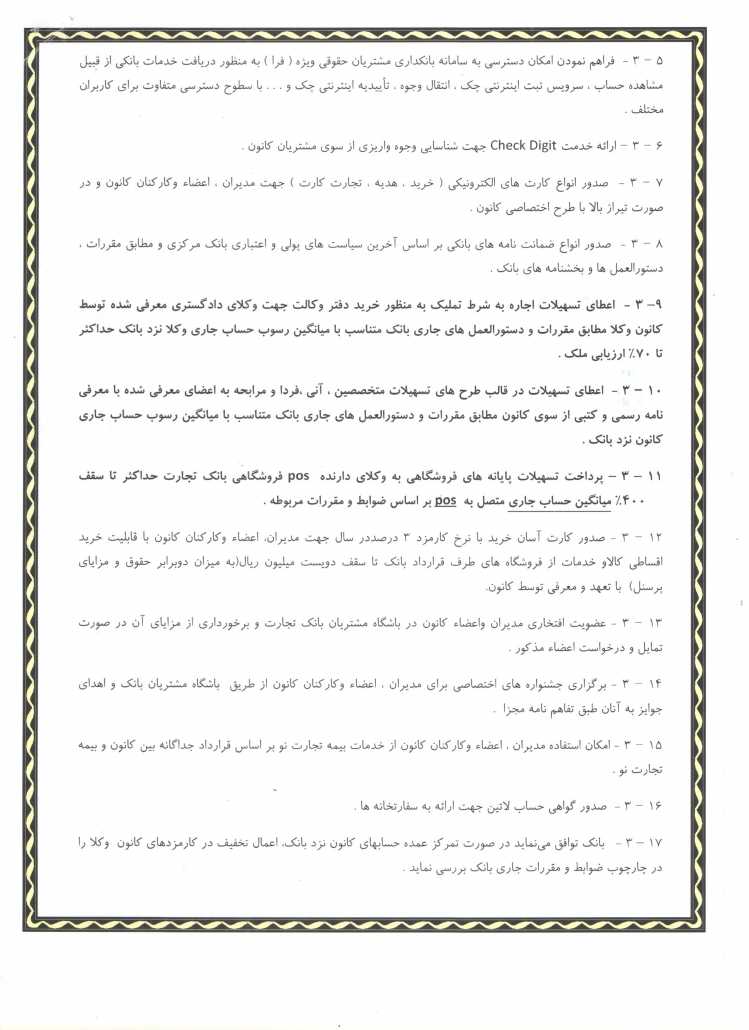 ۵ – ۳ - فراهم نمودن امکان دسترسی به سامانه بانکداری مشتریان حقوقی ویژه ( فرا ) به منظور دریافت خدمات بانکی از قبیل
مشاهده حساب ، سرویس ثبت اینترنتی چک ، انتقال وجوه ، تأییدیه اینترنتی چک و . . . با سطوح دسترسی متفاوت برای کاربران
مختلف .
۶ – ۳ – ارائه خدمت Check Digit جهت شناسایی وجوه واریزی از سوی مشتریان کانون .
۷ – ۳ - صدور انواع کارت های الکترونیکی ( خرید ، هدیه ، تجارت کارت ) جهت مدیران ، اعضاء وکارکنان کانون و در
صورت تیراژ بالا با طرح اختصاصی کانون .
۸ – ۳ - صدور انواع ضمانت نامه های بانکی بر اساس آخرین سیاست های پولی و اعتباری بانک مرکزی و مطابق مقررات ،
دستورالعمل ها و بخشنامه های بانک .
۹– ۳ - اعطای تسهیلات اجاره به شرط تملیک به منظور خرید دفتر وکالت جهت وکلای دادگستری معرفی شده توسط
کانون وکلا مطابق مقررات و دستورالعمل های جاری بانک متناسب با میانگین رسوب حساب جاری وکلا نزد بانک حداکثر
تا ۷۰٪ ارزیابی ملک .
۱۰ – ۳ - اعطای تسهیلات در قالب طرح های تسهیلات متخصصین ، آنی ،فردا و مرابحه به اعضای معرفی شده با معرفی
نامه رسمی و کتبی از سوی کانون مطابق مقررات و دستورالعمل های جاری بانک متناسب با میانگین رسوب حساب جاری
کانون نزد بانک .
۱۱ – ۳ – پرداخت تسهیلات پایانه های فروشگاهی به وکلای دارنده pos فروشگاهی بانک تجارت حداکثر تا سقف
۴۰۰٪ میانگین حساب جاری متصل به pos بر اساس ضوابط و مقررات مربوطه .
۱۲ – ۳ - صدور کارت آسان خرید با نرخ کارمزد ۳ درصددر سال جهت مدیران، اعضاء وکارکنان کانون با قابلیت خرید
اقساطی کالاو خدمات از فروشگاه های طرف قرارداد بانک تا سقف دویست میلیون ریال(به میزان دوبرابر حقوق و مزایای
پرسنل) با تعهد و معرفی توسط کانون.
۱۳ – ۳ - عضویت افتخاری مدیران واعضاء کانون در باشگاه مشتریان بانک تجارت و برخورداری از مزایای آن در صورت
تمایل و درخواست اعضاء مذکور .
۱۴ – ۳ - برگزاری جشنواره های اختصاصی برای مدیران ، اعضاء وکارکنان کانون از طریق باشگاه مشتریان بانک و اهدای
جوایز به آنان طبق تفاهم نامه مجزا .
۱۵ – ۳ - امکان استفاده مدیران ، اعضاء وکارکنان کانون از خدمات بیمه تجارت نو بر اساس قرارداد جداگانه بین کانون و بیمه
تجارت نو .
۱۶ – ۳ - صدور گواهی حساب لاتین جهت ارائه به سفارتخانه ها .
۱۷ – ۳ - بانک توافق می‌نماید در صورت تمرکز عمده حسابهای کانون نزد بانک، اعمال تخفیف در کارمزدهای کانون وکلا را
در چارچوب ضوابط و مقررات جاری بانک بررسی نماید .